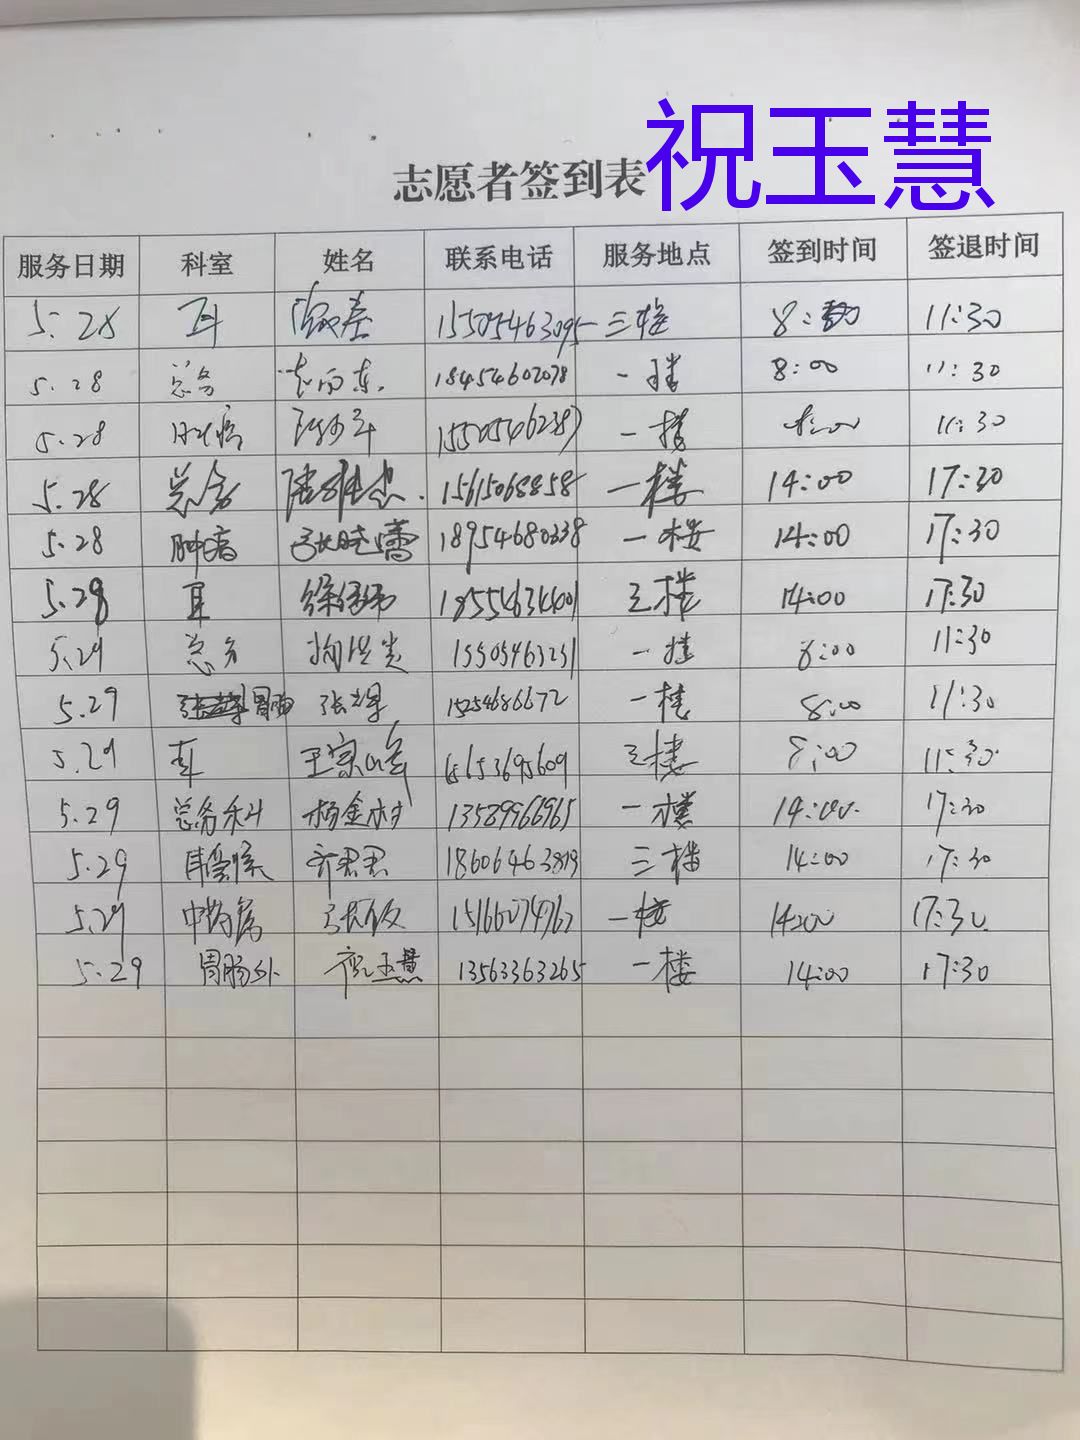 祝玉慧
志愿者签到表
服务日期 科室 姓名 联系电话 服务地点 签到时间 签退时间
5.28 耳 15505463095 三楼 8: 11:30
5.28 总务 18454602078 一楼 8:00 11:30
5.28 一楼 11:30
5.28 总务 15615068858 一楼 14:00 17:30
5.28 肿瘤 张晓蕾 18954680338 一楼 14:00 17:30
5.28 耳 三楼 14:00 17:30
5.29 总务 15505463231 一楼 8:00 11:30
5.29 胃肠 张 15254686672 一楼 8:00 11:30
5.29 王宗峰 15653695609 三楼 8:00 11:30
5.29 总务科 杨金树 13589966965 一楼 14:00 17:30
5.29 耳鼻喉 齐君君 18606463819 三楼 14:00 17:30
5.29 一楼 14:00 17:30
5.29 胃肠外 祝玉慧 13563363265 一楼 14:00 17:30